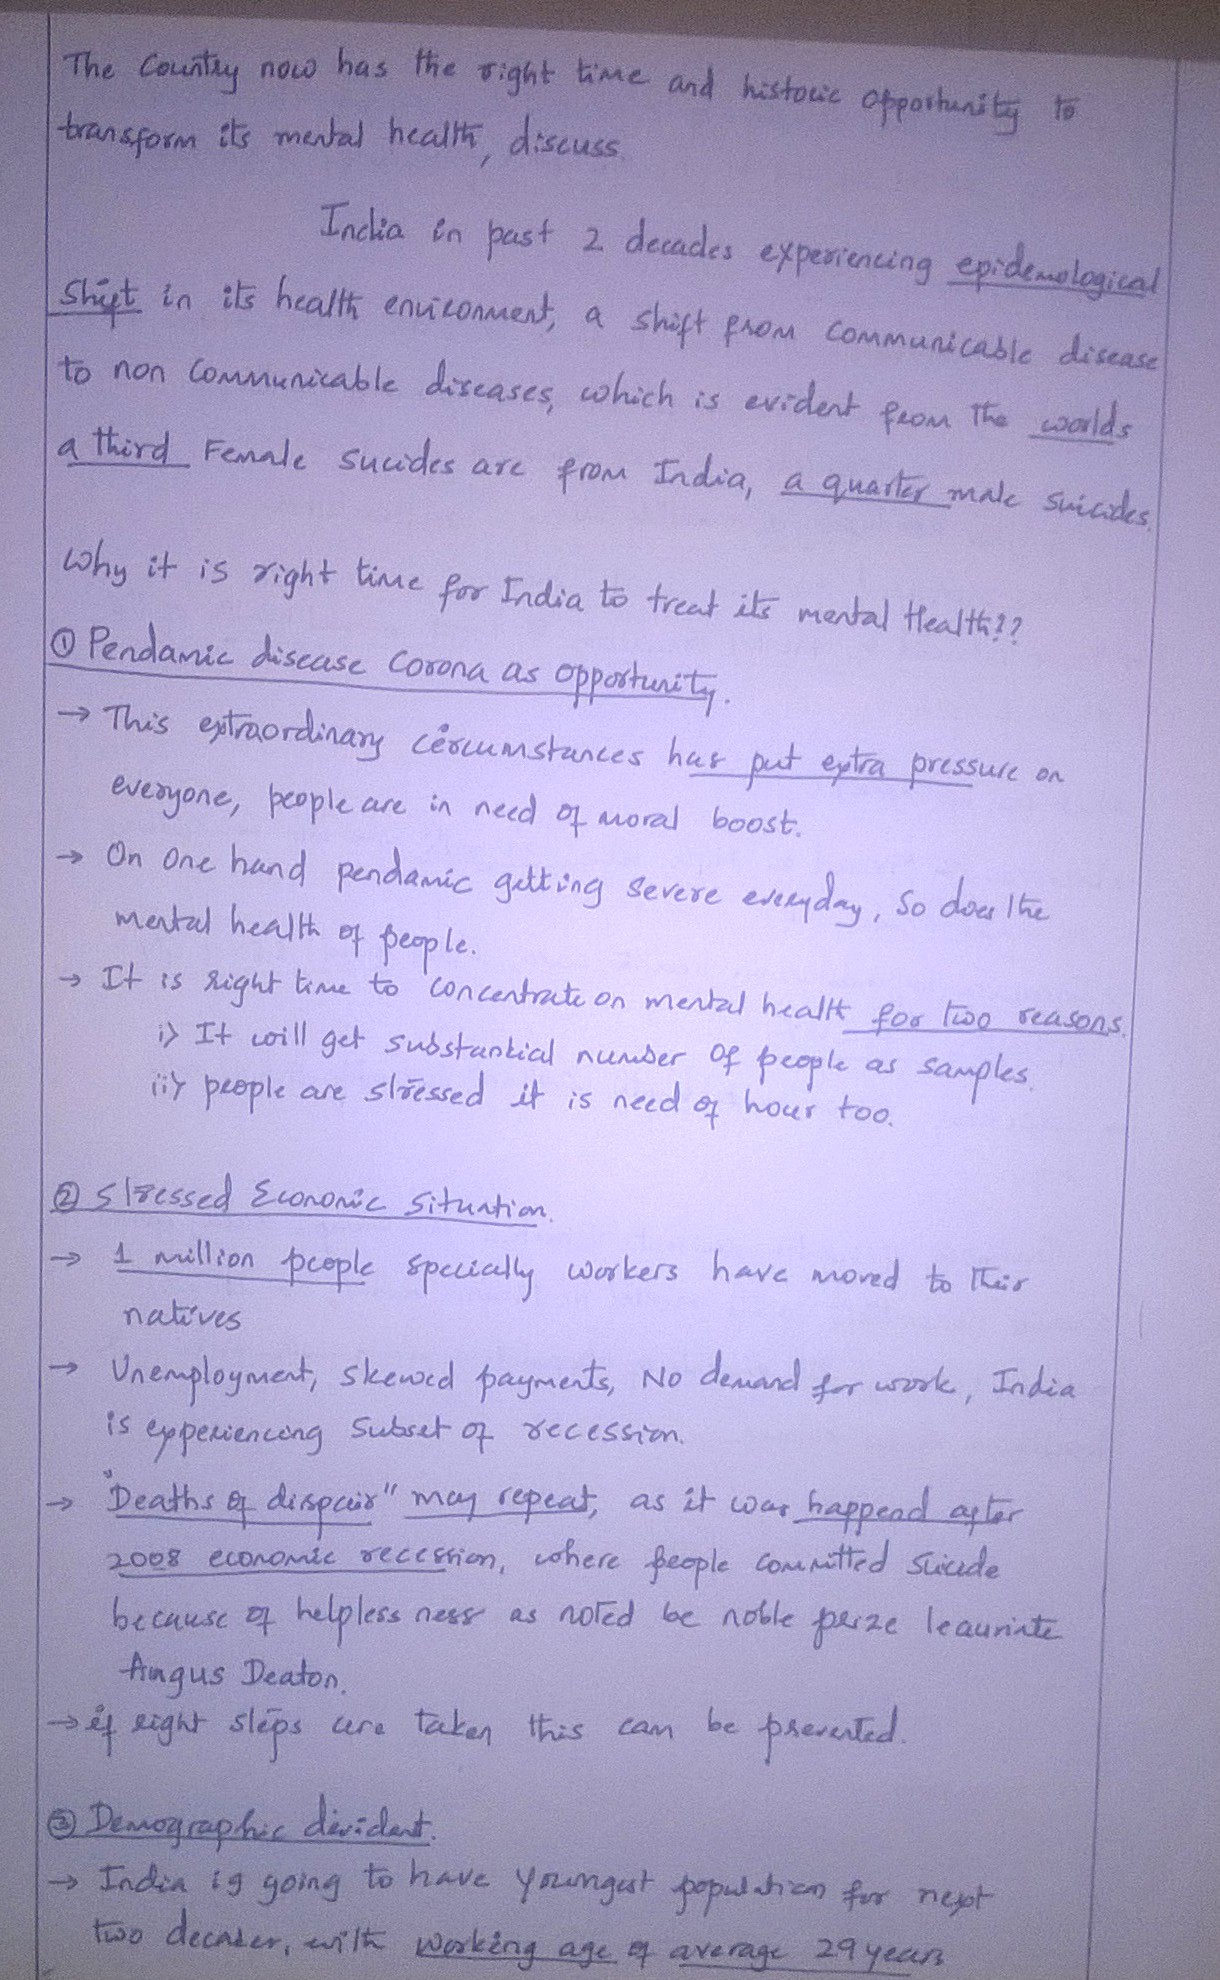 The Country now has the right time and historic opportunity to
transform its mental health, discuss.
India in past 2 decades experiencing epidemological
Shift in its health environment, a shift from communicable disease
to non communicable diseases, which is evident from the worlds
a third Female sucides are from India, a quarter male suicides.
Why it is right time for India to treat its mental Health??
① Pendamic disease Corona as opportunity.
→ This extraordinary circumstances has put extra pressure on
everyone, people are in need of moral boost.
→ On one hand pendamic getting severe everyday, so does the
mental health of people.
→ It is right time to concentrate on mental health for two reasons.
i) It will get substantial number of people as samples.
ii) people are stressed it is need of hour too.
② Stressed Economic Situation.
→ 1 million people specially workers have moved to their
natives
→ Unemployment, skewed payments, No demand for work, India
is experiencing subset of recession.
→ "Deaths of dispair" may repeat, as it was happend after
2008 economic recession, where people committed suicide
because of helpless ness as noted be noble prize leauriate
Angus Deaton.
→ if right steps are taken this can be prevented.
③ Demographic divident.
→ India is going to have youngest population for next
two decades, with working age of average 29 years